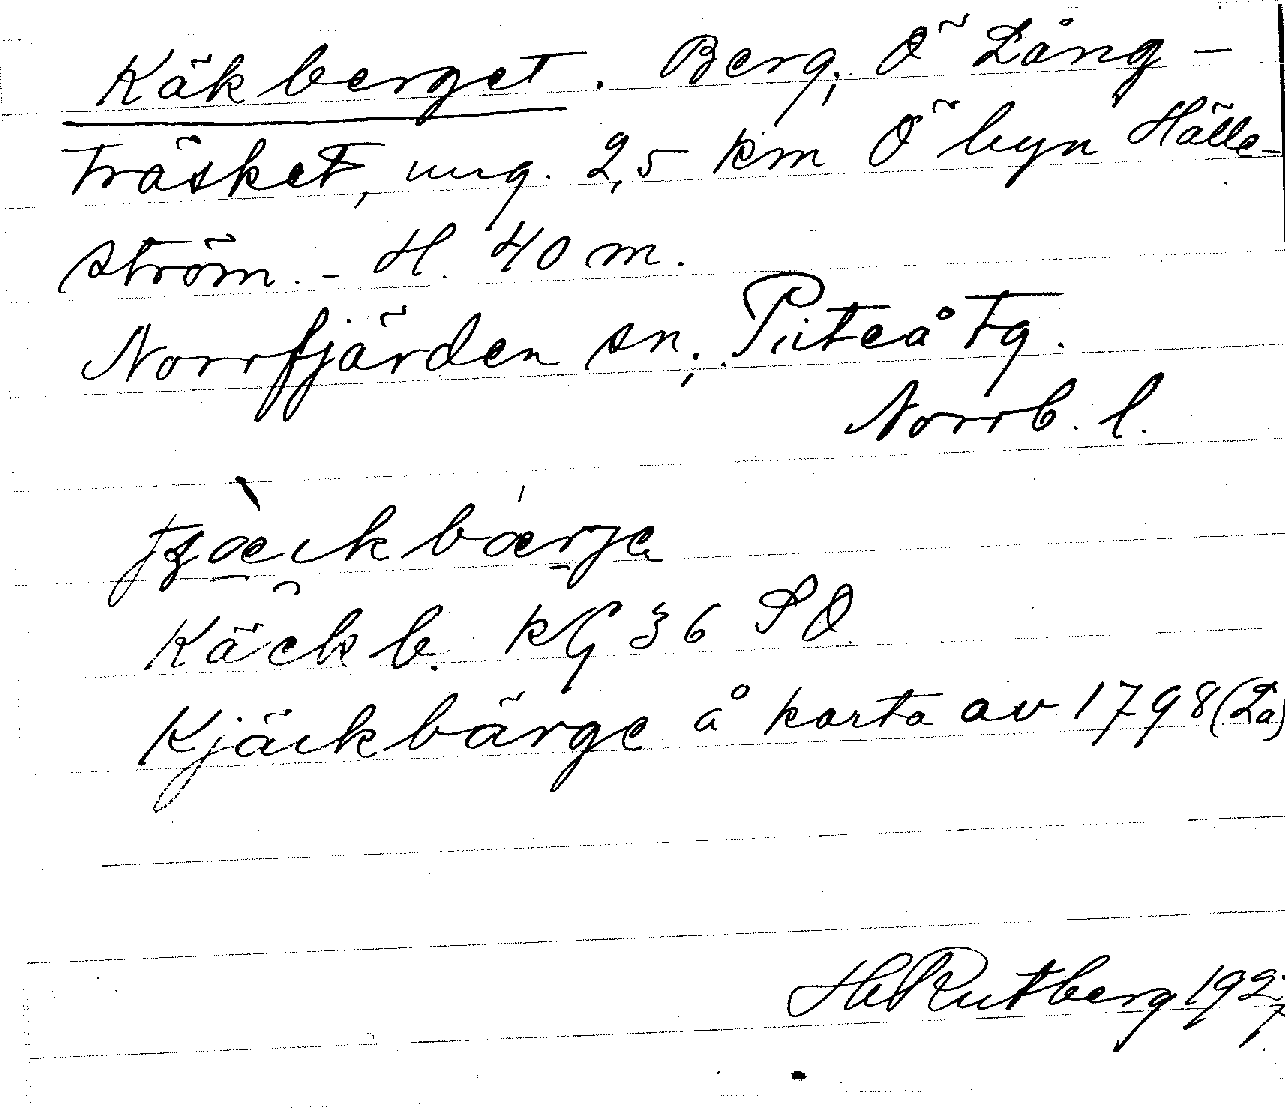 Käkberget. Berg, Ö Lång-
träsket, ung. 2,5 km Ö byn Hälle-
ström. - H. 40 m.
Norrfjärden sn, Piteå tg.
Norrb. l.
Käckb. KG 36 SO
Kjäckbärge å karta av 1798 (La)
H Rutberg 1927